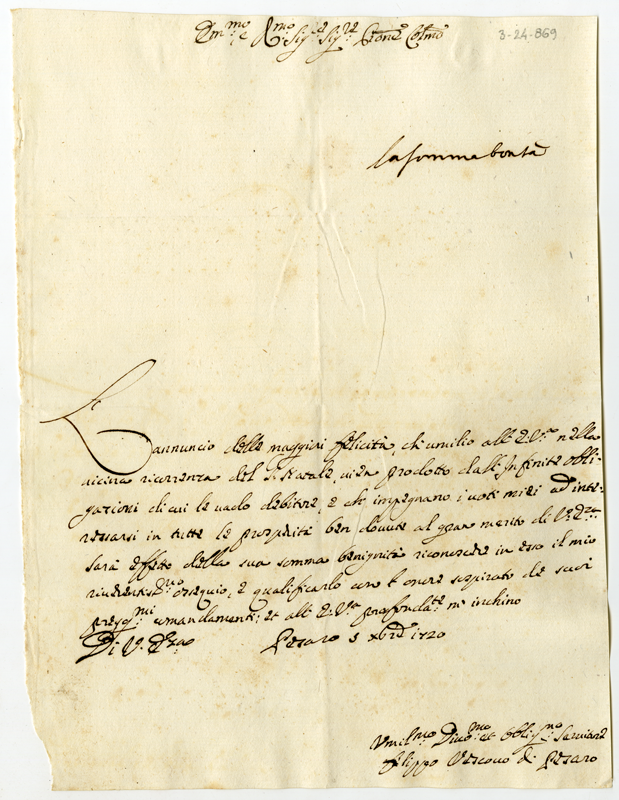 Em.mo e R.mo Sig.re Sig.re P.rone Col.mo
3-24-869
la somma bontà
L'annuncio delle maggiori felicità, ch'umilio all'E. V.ra nella
vicina ricorrenza del S. Natale, vien prodotto dall'Infinite obli-
gazioni di cui le vado debitore, e ch'impegnano i voti miei ad inte-
ressarsi in tutte le prosperità ben dovute al gran merito di V. E.za
sarà effetto della sua somma benignità riconoscere in esso il mio
riverentiss.mo ossequio, e qualificarlo con l'onore sospirato de suoi
preg.mi comandamenti; et all'E. V.ra profondam.te m'inchino
Di V. E.za
Pesaro 5 Xbre 1720
Umil.mo Divo.mo et Obblig.mo Servitore
Filippo Vescovo di Pesaro